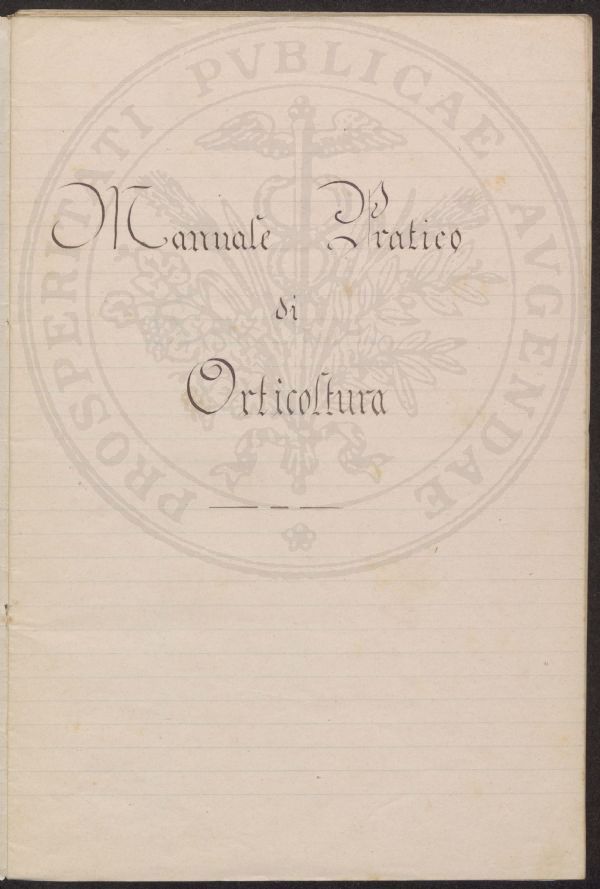 Mannale Pratico
di
Orticoltura
PROSPERITATI PVBLICAE AVGENDAE